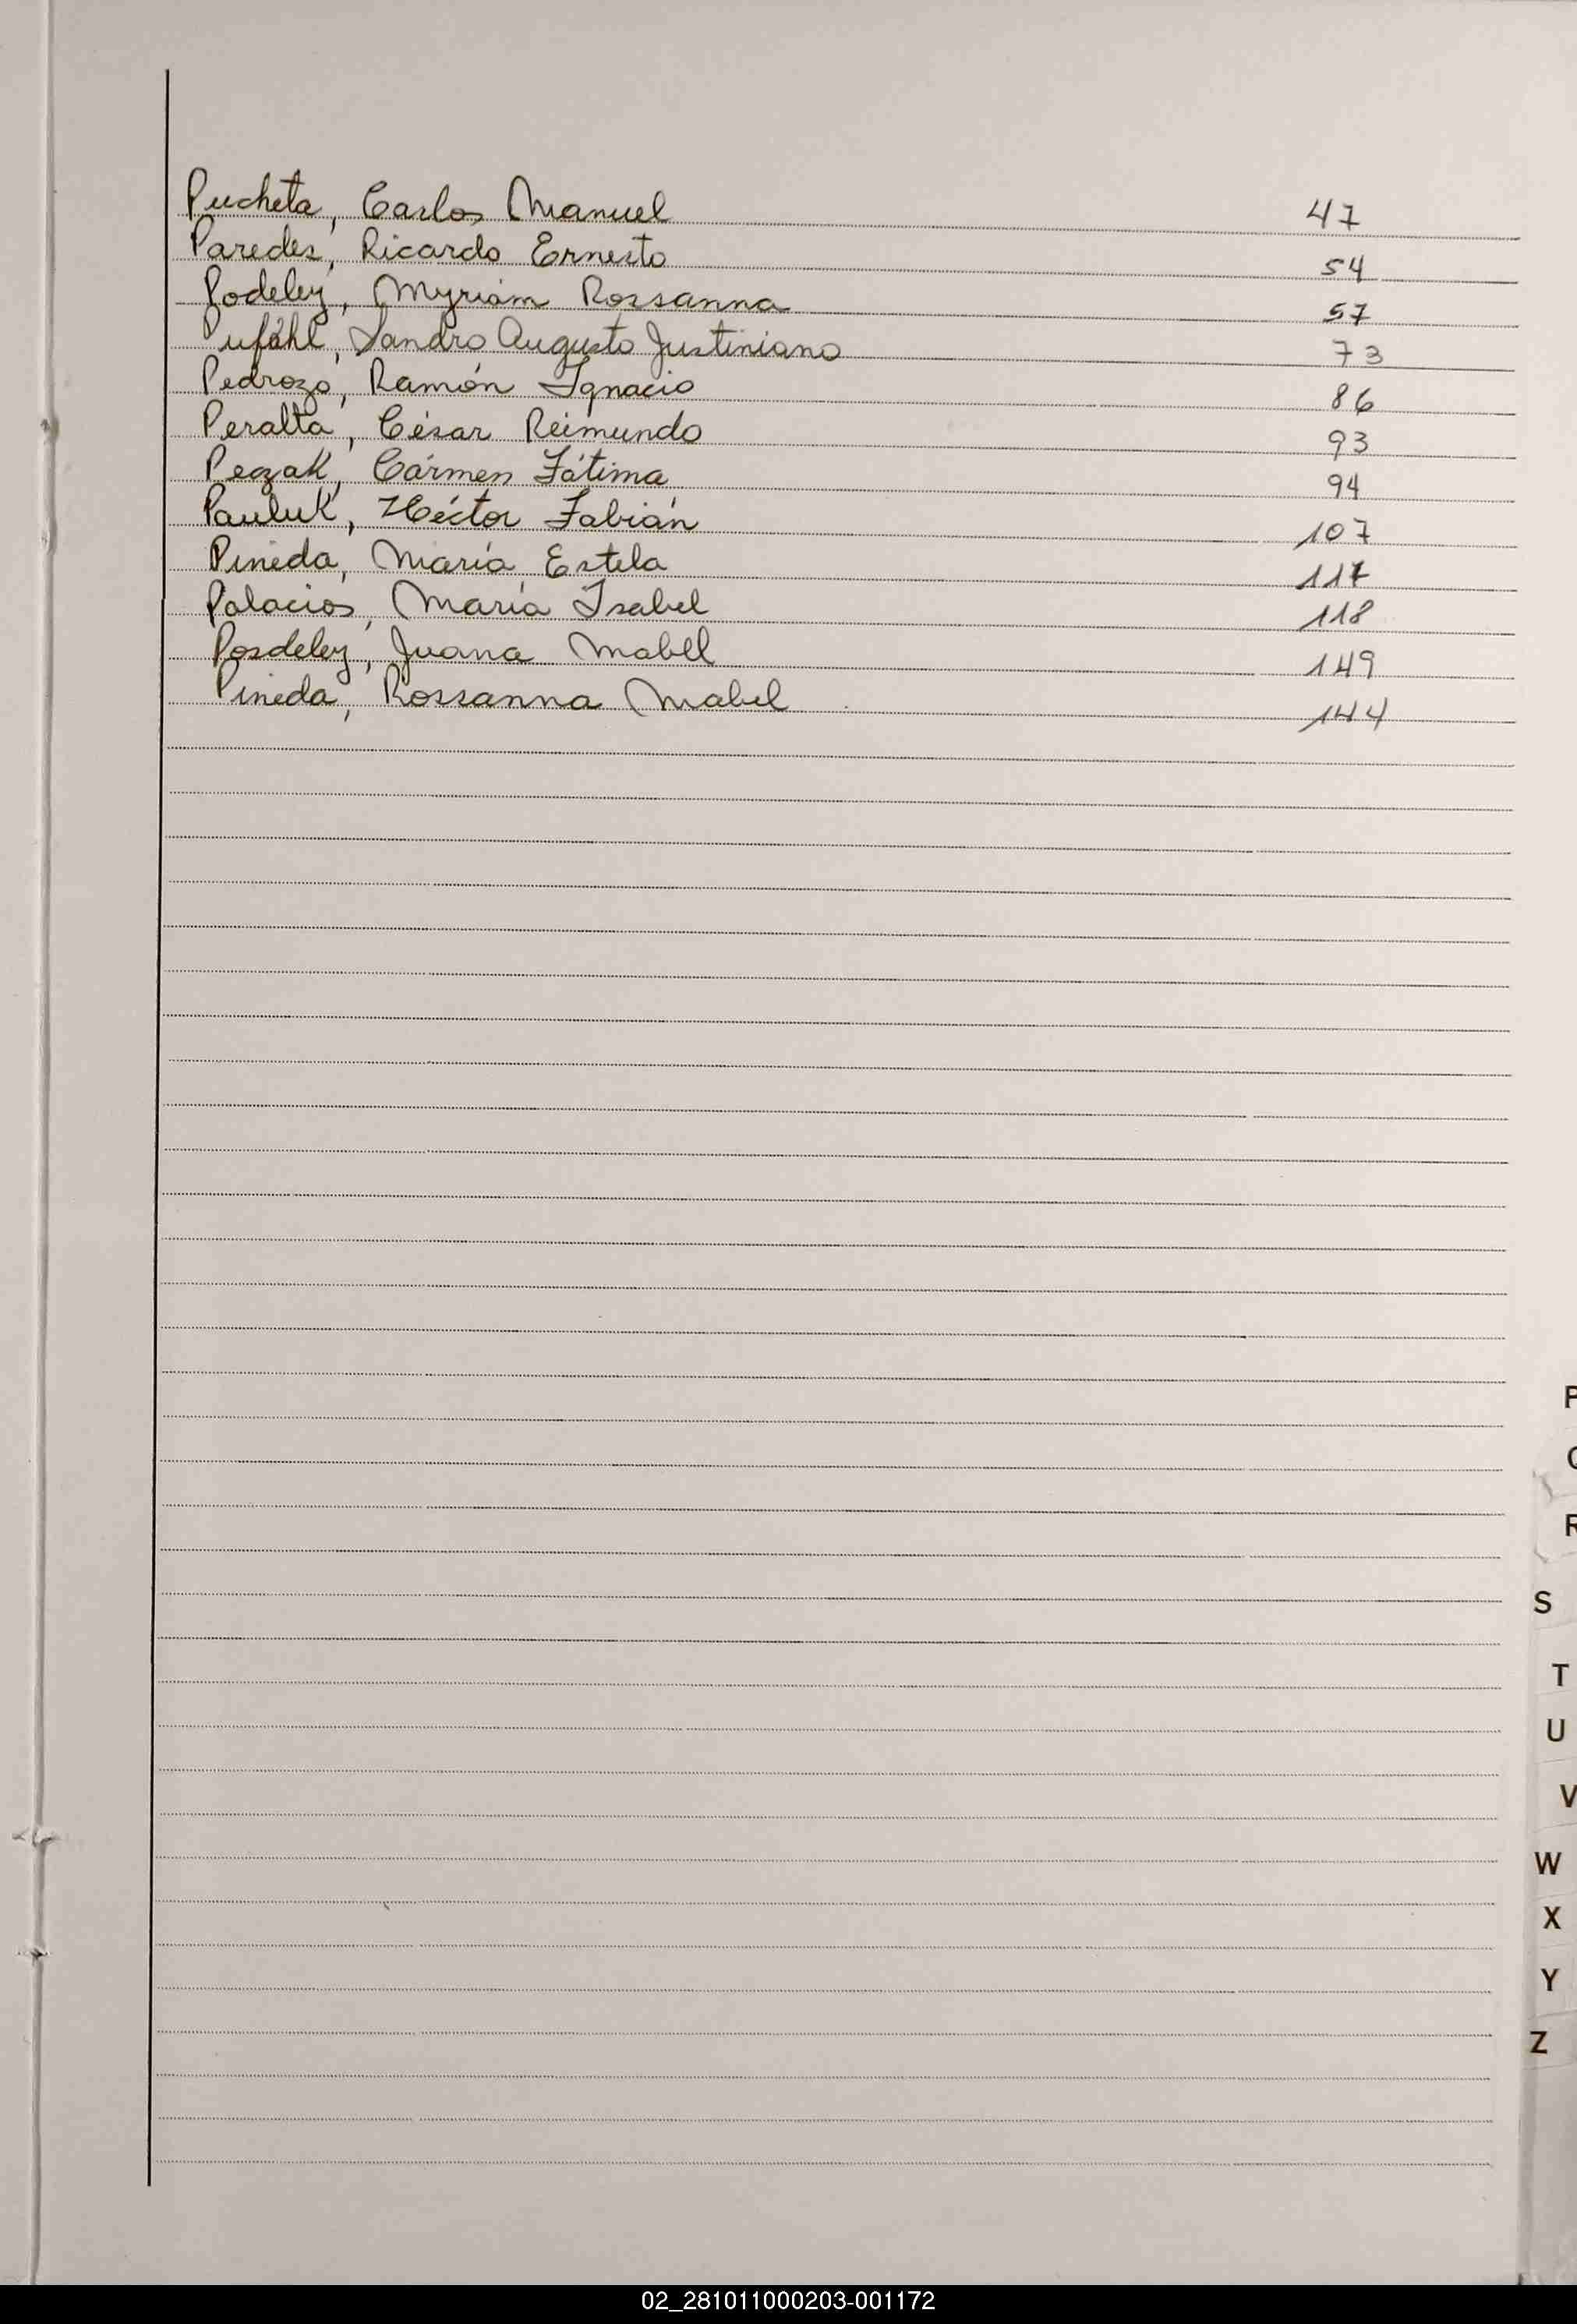 Pucheta, Carlos Manuel 47
Paredes, Ricardo Ernesto 54
Podeley, Myriam Rossanna 57
Pufáhl, Sandro Augusto Justiniano 73
Pedrozo, Ramón Ignacio 86
Peralta, César Reimundo 93
Peczak, Cármen Fátima 94
Pauluk, Héctor Fabián 107
Pineda, María Estela 117
Palacios, María Isabel 118
Posdeley, Juana Mabel 149
Pineda, Rossanna Mabel 144
P
R
S
T
U
V
W
X
Y
Z
02_281011000203-001172